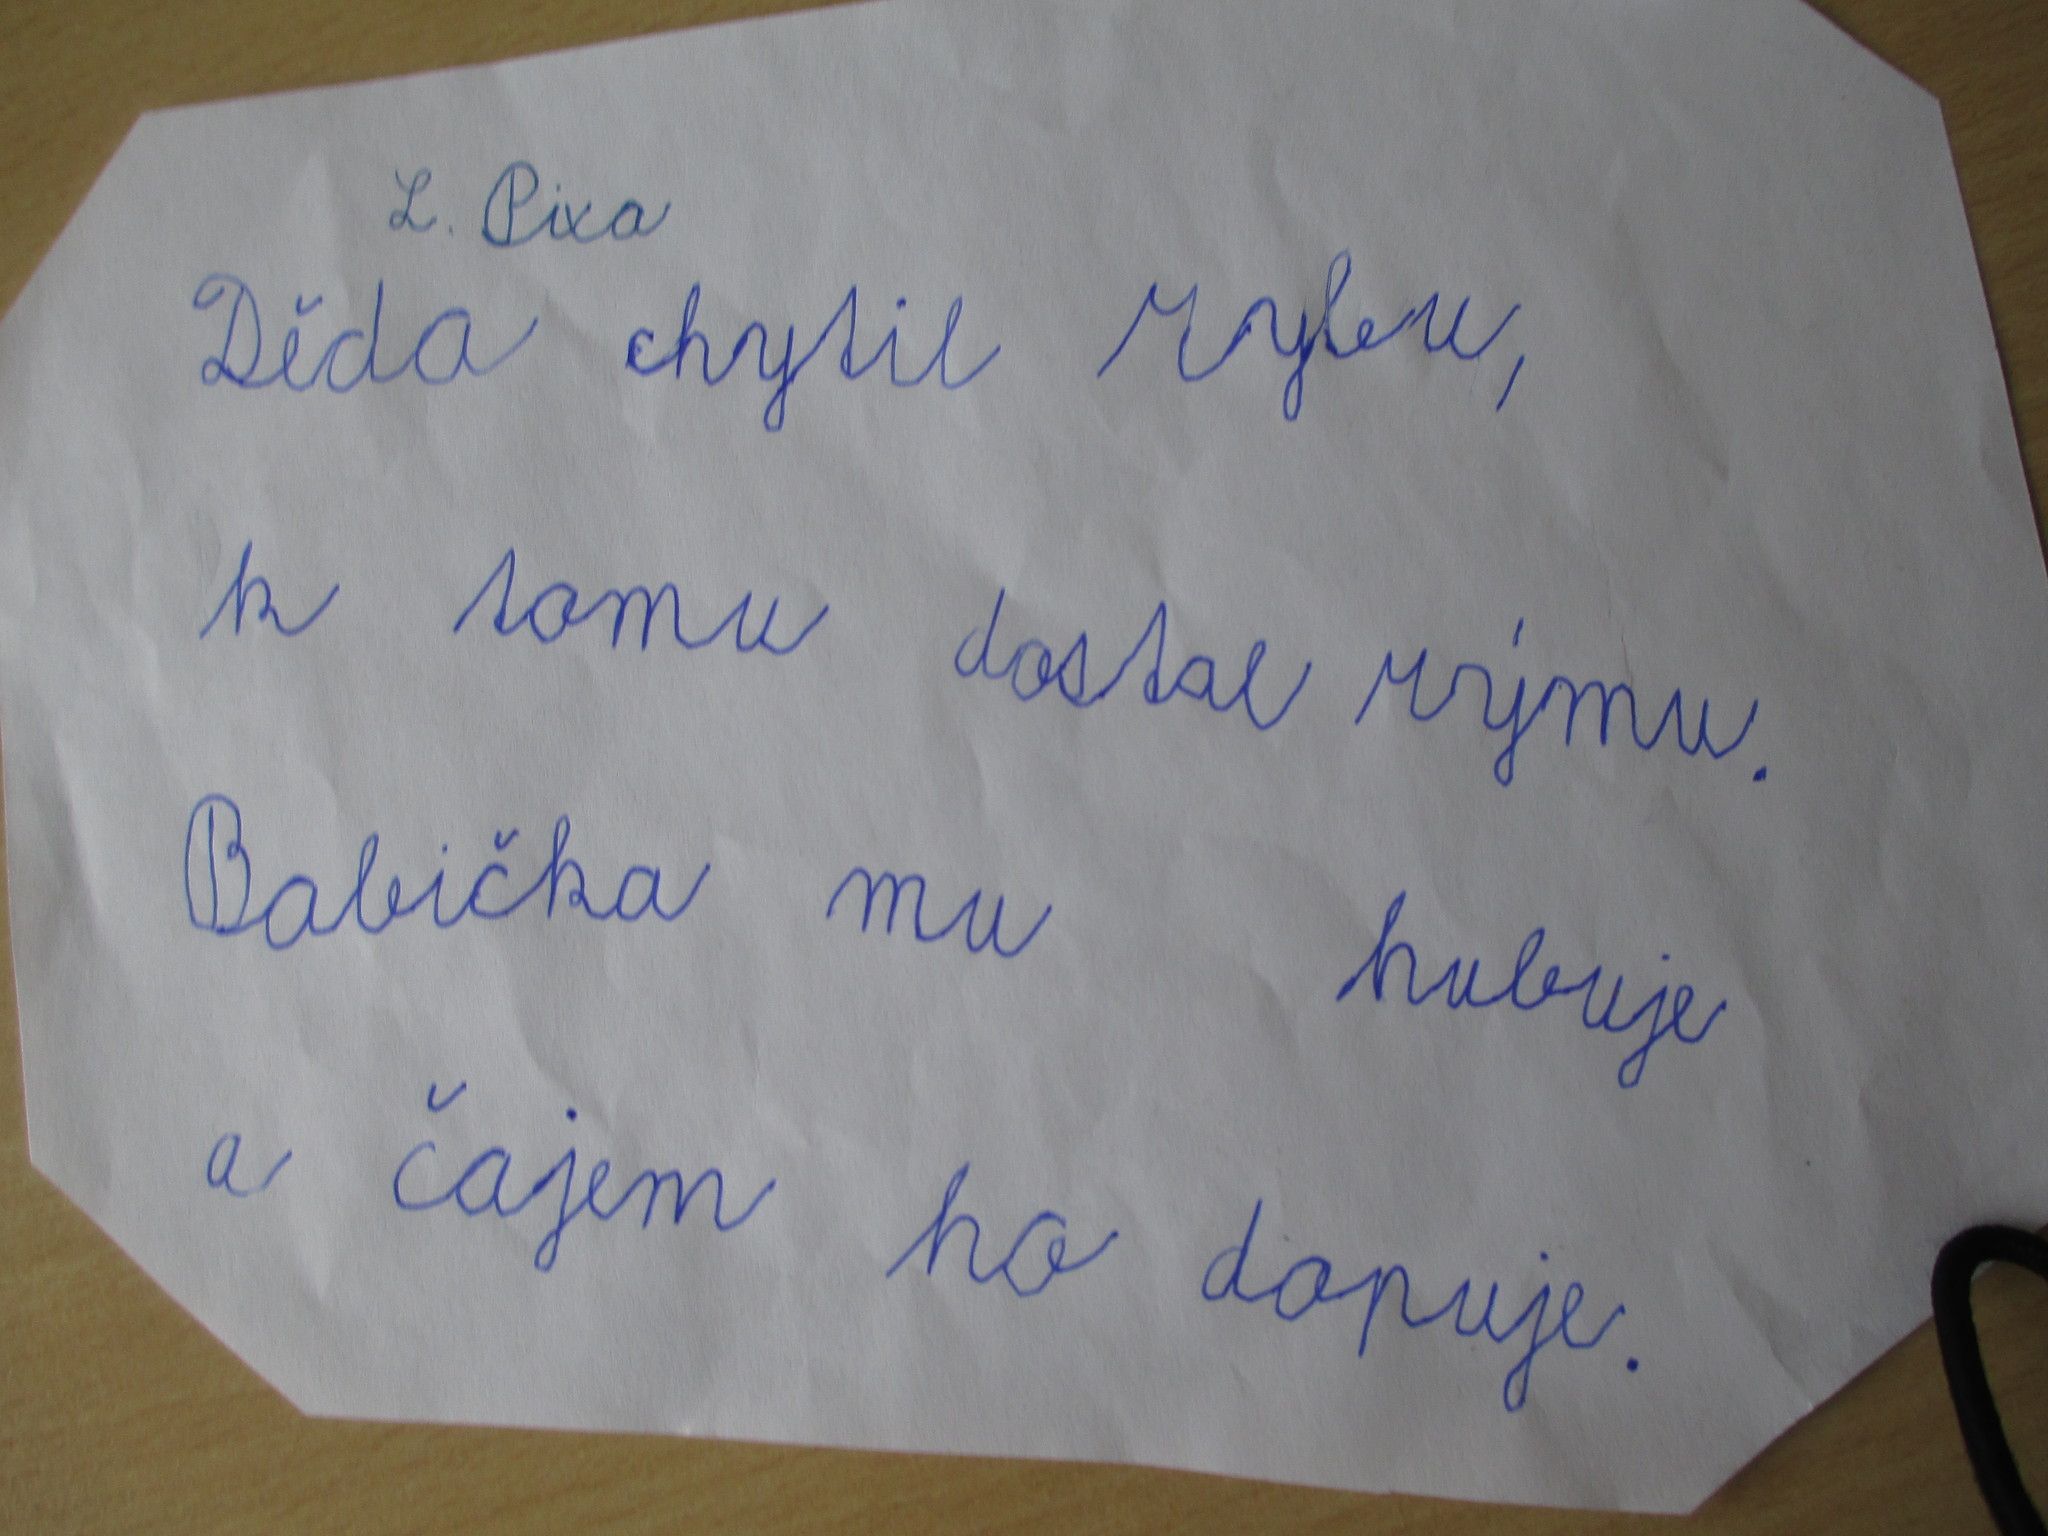 L. Pixa
Děda chytil rybu,
k tomu dostal rýmu.
Babička mu hubuje
a čajem ho dopuje.